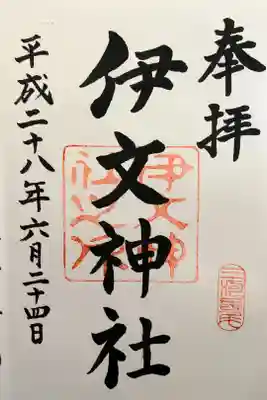 奉拝
伊文神社
平成二十八年六月二十四日